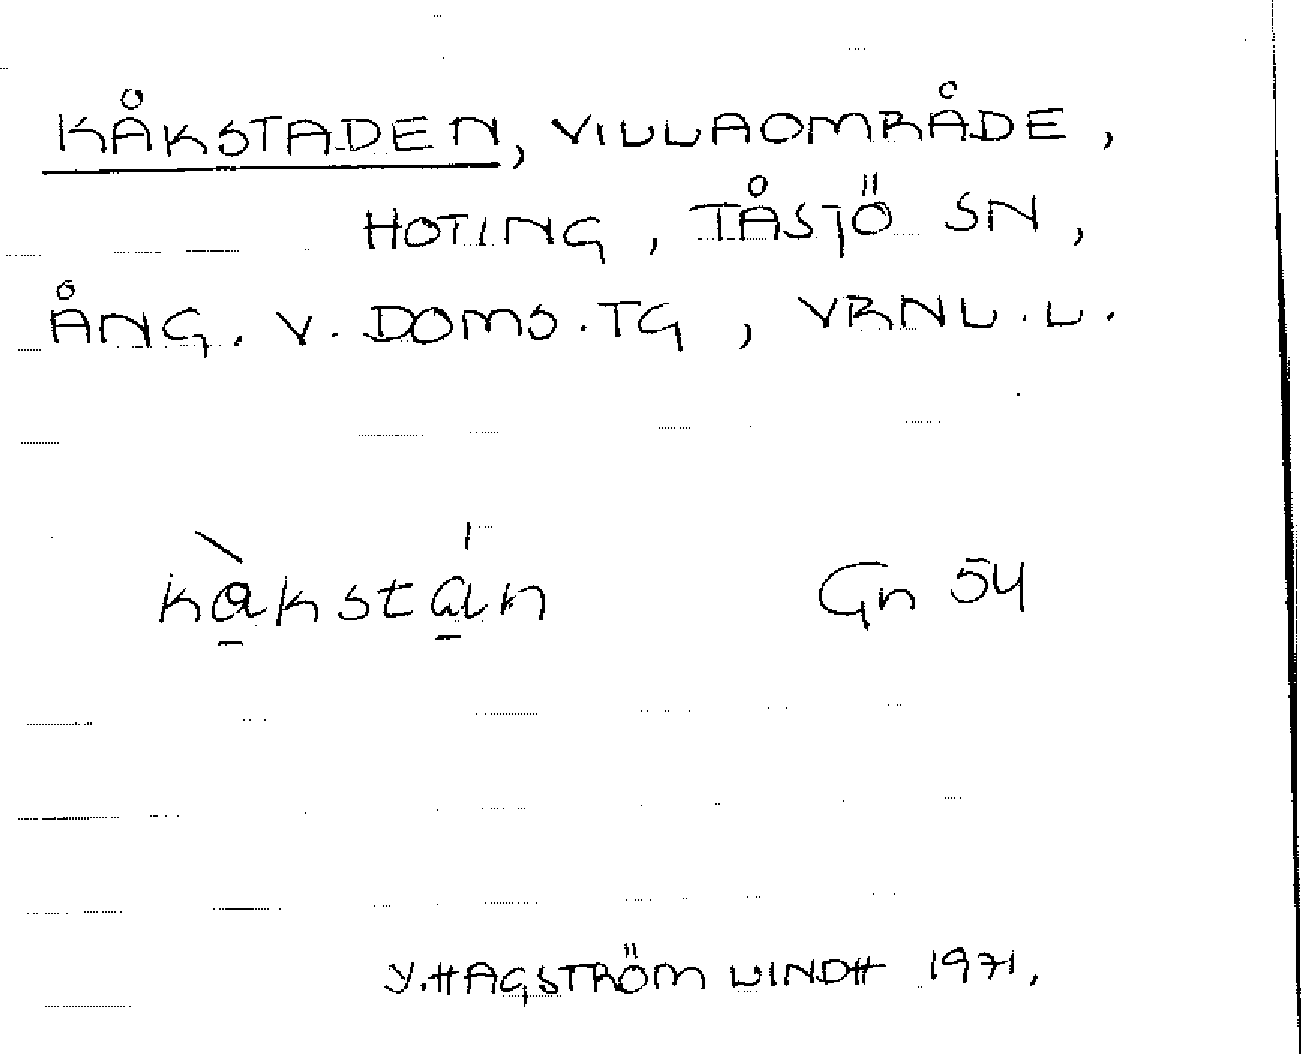 KÅKSTADEN, VILLAOMRÅDE,
HOTING, TÅSJÖ SN,
ÅNG. V. DOMS.TG, VRNL.L.
kàkstán Gn 54
Y.HAGSTRÖM LINDH 1971.